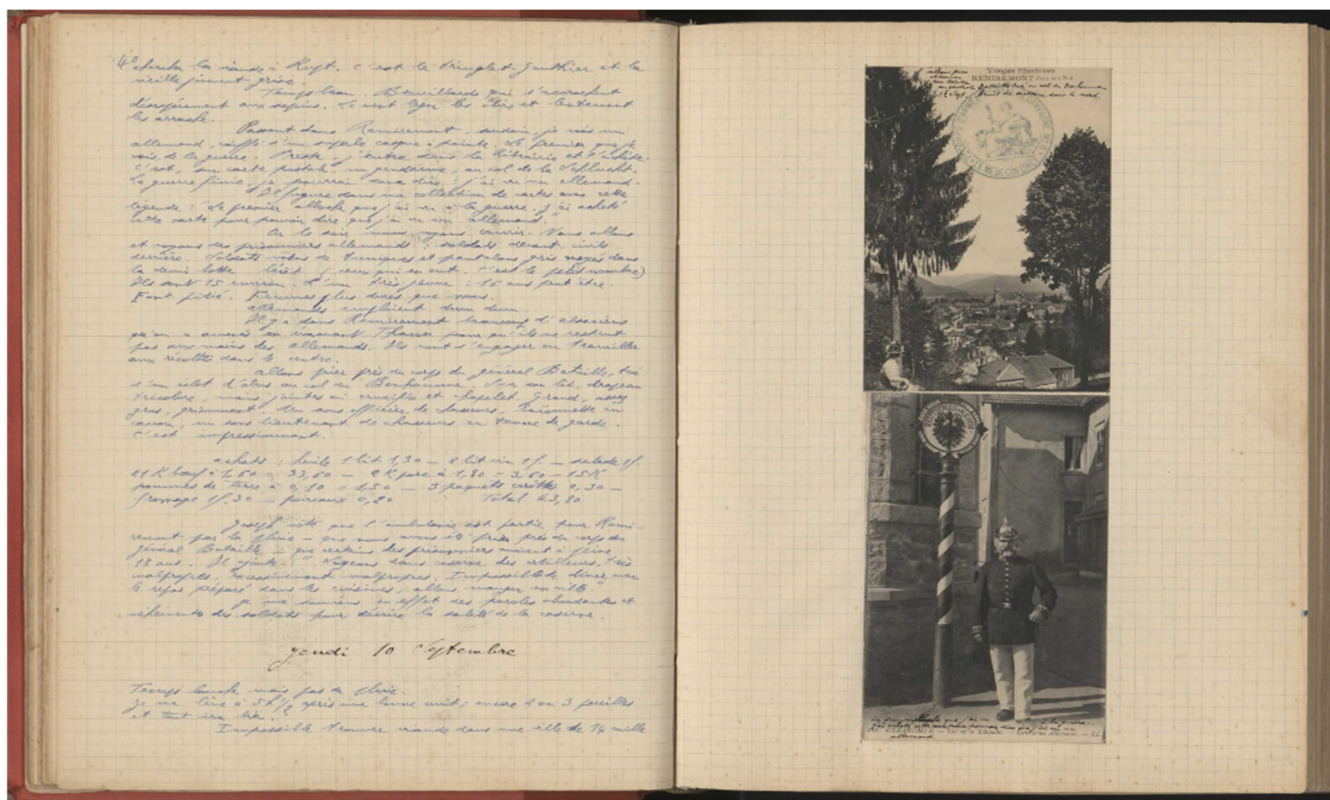 4° chercher la viande à Rupt. C'est le tringlot Gauthier et la
vieille jument grise.
Temps beau. Brouillards qui s'accrochent
désespérément aux sapins. Le vent léger les étire et lentement
les arrache.
Passant dans Remiremont, soudain, je vois un
allemand, coiffé d'un superbe casque à pointe. Le premier que je
vois de la guerre. Preste, j'entre dans la librairie et l'achète.
C'est, sur carte postale, un gendarme, au col de la Schlucht.
La guerre finie, je pourrai donc dire : j'ai vu un allemand.
Il figure dans ma collection de cartes avec cette
légende : "Le premier alboche que j'ai vu à la guerre. J'ai acheté
cette carte pour pouvoir dire que j'ai vu un allemand."
Or le soir nous voyons courir. Nous allons
et voyons des prisonniers allemands : soldats devant, civils
derrière. Soldats vêtus de tuniques et pantalons gris
la demi botte béret (ceux qui en ont. C'est le petit nombre)
Ils sont 15 environ. L'un très jeune : 16 ans peut être.
Font pitié. Femmes plus dures que nous.
allemands emploient dum dum
Il y a dans Remiremont beaucoup d'alsaciens
qu'on a amenés en évacuant Thann pour qu'ils ne restent
pas aux mains des allemands. Ils vont s'engager ou travailler
aux récoltes dans le centre.
allons prier près du corps du général Bataille, tué
d'un éclat d'obus au col du Bonhomme. Sur son lit, drapeau
tricolore, mains jointes au crucifix et chapelet. Grand, assez
gros, grisonnant. Un sous officier de chasseurs, baïonnette au
canon, un sous lieutenant de chasseurs en tenue de garde.
C'est impressionnant.
achats : huile 1 lit 1,30 — 2 lit vin 1f. — salade 1f.
21 K bœuf à 1,60 = 33,60 — 2 K porc à 1,80 = 3,60 — 15 K
pommes de terre à 0,10 = 1,50 — 3 paquets 0,30 —
fromage 1f.30 — poireaux 0,20 Total 43,80
Joseph note que l'ambulance est partie pour Remi-
remont par la pluie — que nous avons été prier près du corps du
général Bataille — que certains des prisonniers avaient à peine
18 ans. Il ajoute : "Logeons dans caserne des artilleurs, très
malpropre, excessivement malpropre. Impossible de dîner avec
le repas préparé dans les cuisines, allons manger en ville."
Je me souviens en effet des paroles abondantes et
véhémentes des soldats pour décrire la saleté de la caserne.
Jeudi 10 Septembre
Temps louche mais pas de pluie.
Je me lève à 5h 1/2 après une bonne nuit ; encore 2 ou 3 pareilles
et tout ira bien.
Impossible trouver viande dans une ville de 14 mille
Vosges Illustrées
REMIREMONT
allons prier
au col du Bonhomme
GÉRARDMER
Le premier alboche que j'ai vu à la guerre.
J'ai acheté cette carte pour pouvoir dire que j'ai vu un
allemand.